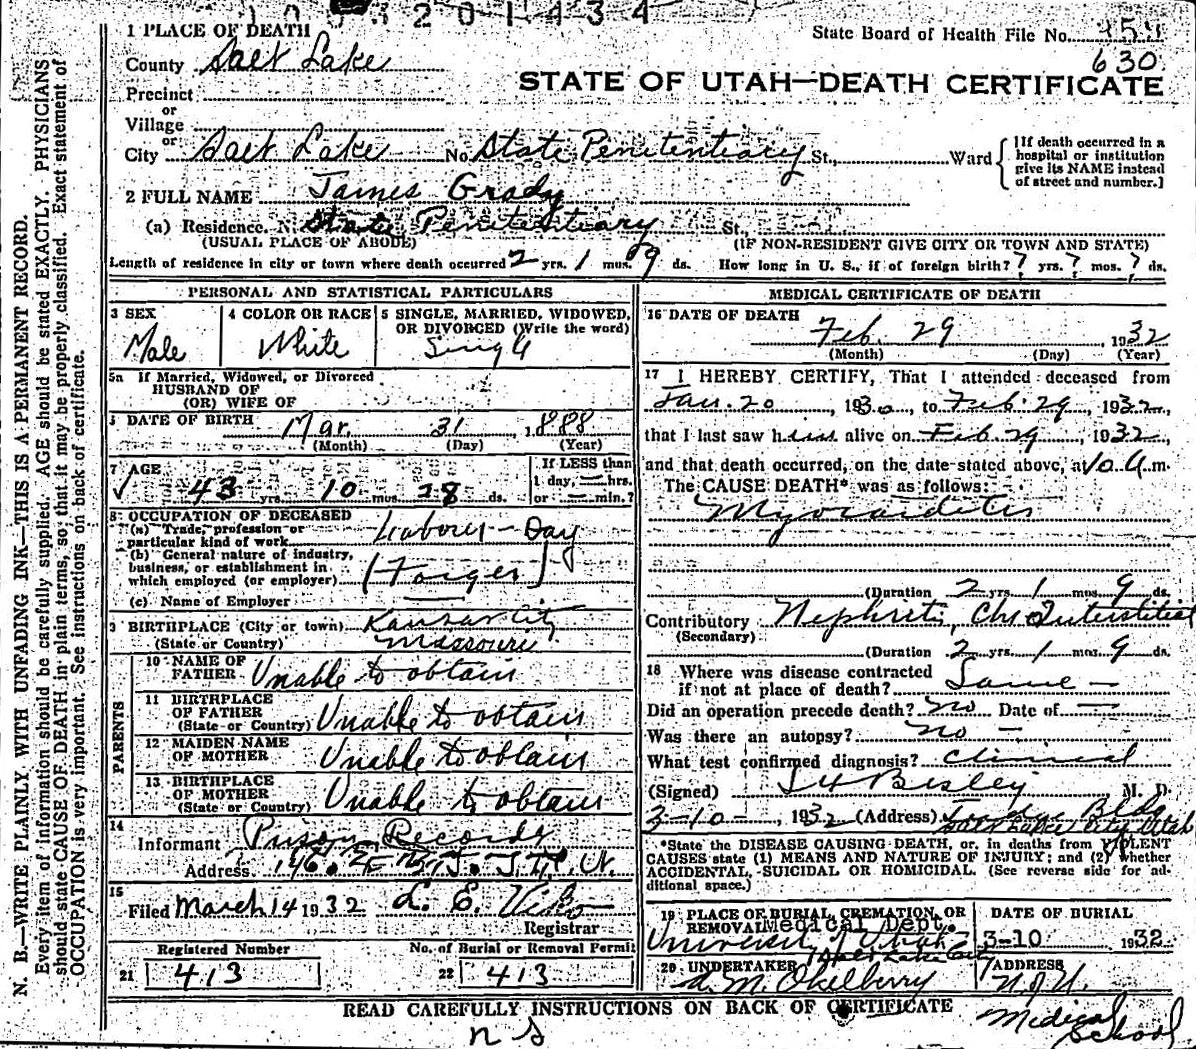 1003201434
1 PLACE OF DEATH
State Board of Health File No.
County Salt Lake
630
STATE OF UTAH—DEATH CERTIFICATE
Precinct
or
Village
or
City Salt Lake No. State Penitentiary St., Ward
[If death occurred in a hospital or institution give its NAME instead of street and number.]
2 FULL NAME James Grady
(a) Residence. No. State Penitentiary St.,
(USUAL PLACE OF ABODE) (IF NON-RESIDENT GIVE CITY OR TOWN AND STATE)
Length of residence in city or town where death occurred 2 yrs. 1 mos. 9 ds. How long in U. S., if of foreign birth? ? yrs. ? mos. ? ds.
PERSONAL AND STATISTICAL PARTICULARS
3 SEX
Male
4 COLOR OR RACE
White
5 SINGLE, MARRIED, WIDOWED, OR DIVORCED (Write the word)
Single
5a If Married, Widowed, or Divorced
HUSBAND OF
(OR) WIFE OF
DATE OF BIRTH Mar. 31 1888
(Month) (Day) (Year)
7 AGE
43 yrs. 10 mos. 28 ds.
If LESS than
1 day, — hrs.
or — min.?
8 OCCUPATION OF DECEASED
(a) Trade, profession or particular kind of work Laborer — Day
(b) General nature of industry, business, or establishment in which employed (or employer) (Forger)
(c) Name of Employer
9 BIRTHPLACE (City or town) Kansas City
(State or Country) Missouri
PARENTS
10 NAME OF FATHER Unable to obtain
11 BIRTHPLACE OF FATHER (State or Country) Unable to obtain
12 MAIDEN NAME OF MOTHER Unable to obtain
13 BIRTHPLACE OF MOTHER (State or Country) Unable to obtain
14
Informant Prison Records
Address
15
Filed March 14 1932 L. E. Viko
Registrar
Registered Number
21 413
No. of Burial or Removal Permit
22 413
MEDICAL CERTIFICATE OF DEATH
16 DATE OF DEATH
Feb. 29 1932
(Month) (Day) (Year)
17 I HEREBY CERTIFY, That I attended deceased from
Jan. 20, 1930, to Feb. 29, 1932,
that I last saw him alive on Feb. 29, 1932,
and that death occurred, on the date stated above, at 10 A m.
The CAUSE DEATH* was as follows:
Myocarditis
(Duration 2 yrs. 1 mos. 9 ds.
Contributory Nephritis, Chr Interstitial
(Secondary)
(Duration 2 yrs. 1 mos. 9 ds.
18 Where was disease contracted
if not at place of death? Same —
Did an operation precede death? No Date of —
Was there an autopsy? no —
What test confirmed diagnosis? Clinical
(Signed) Besley M. D.
3-10-, 1932 (Address) Bldg
Salt Lake City Utah
*State the DISEASE CAUSING DEATH, or, in deaths from VIOLENT
CAUSES state (1) MEANS AND NATURE OF INJURY; and (2) whether
ACCIDENTAL, SUICIDAL OR HOMICIDAL. (See reverse side for additional space.)
19 PLACE OF BURIAL, CREMATION, OR REMOVAL Medical Dept.
University of Utah
Salt Lake City
DATE OF BURIAL
3-10 1932
20 UNDERTAKER
A. M. Okelberry
ADDRESS
U of U.
Medical School
READ CAREFULLY INSTRUCTIONS ON BACK OF CERTIFICATE
n s
N. B.—WRITE PLAINLY WITH UNFADING INK—THIS IS A PERMANENT RECORD.
Every item of information should be carefully supplied. AGE should be stated EXACTLY. PHYSICIANS
should state CAUSE OF DEATH in plain terms, so that it may be properly classified. Exact statement of
OCCUPATION is very important. See instructions on back of certificate.